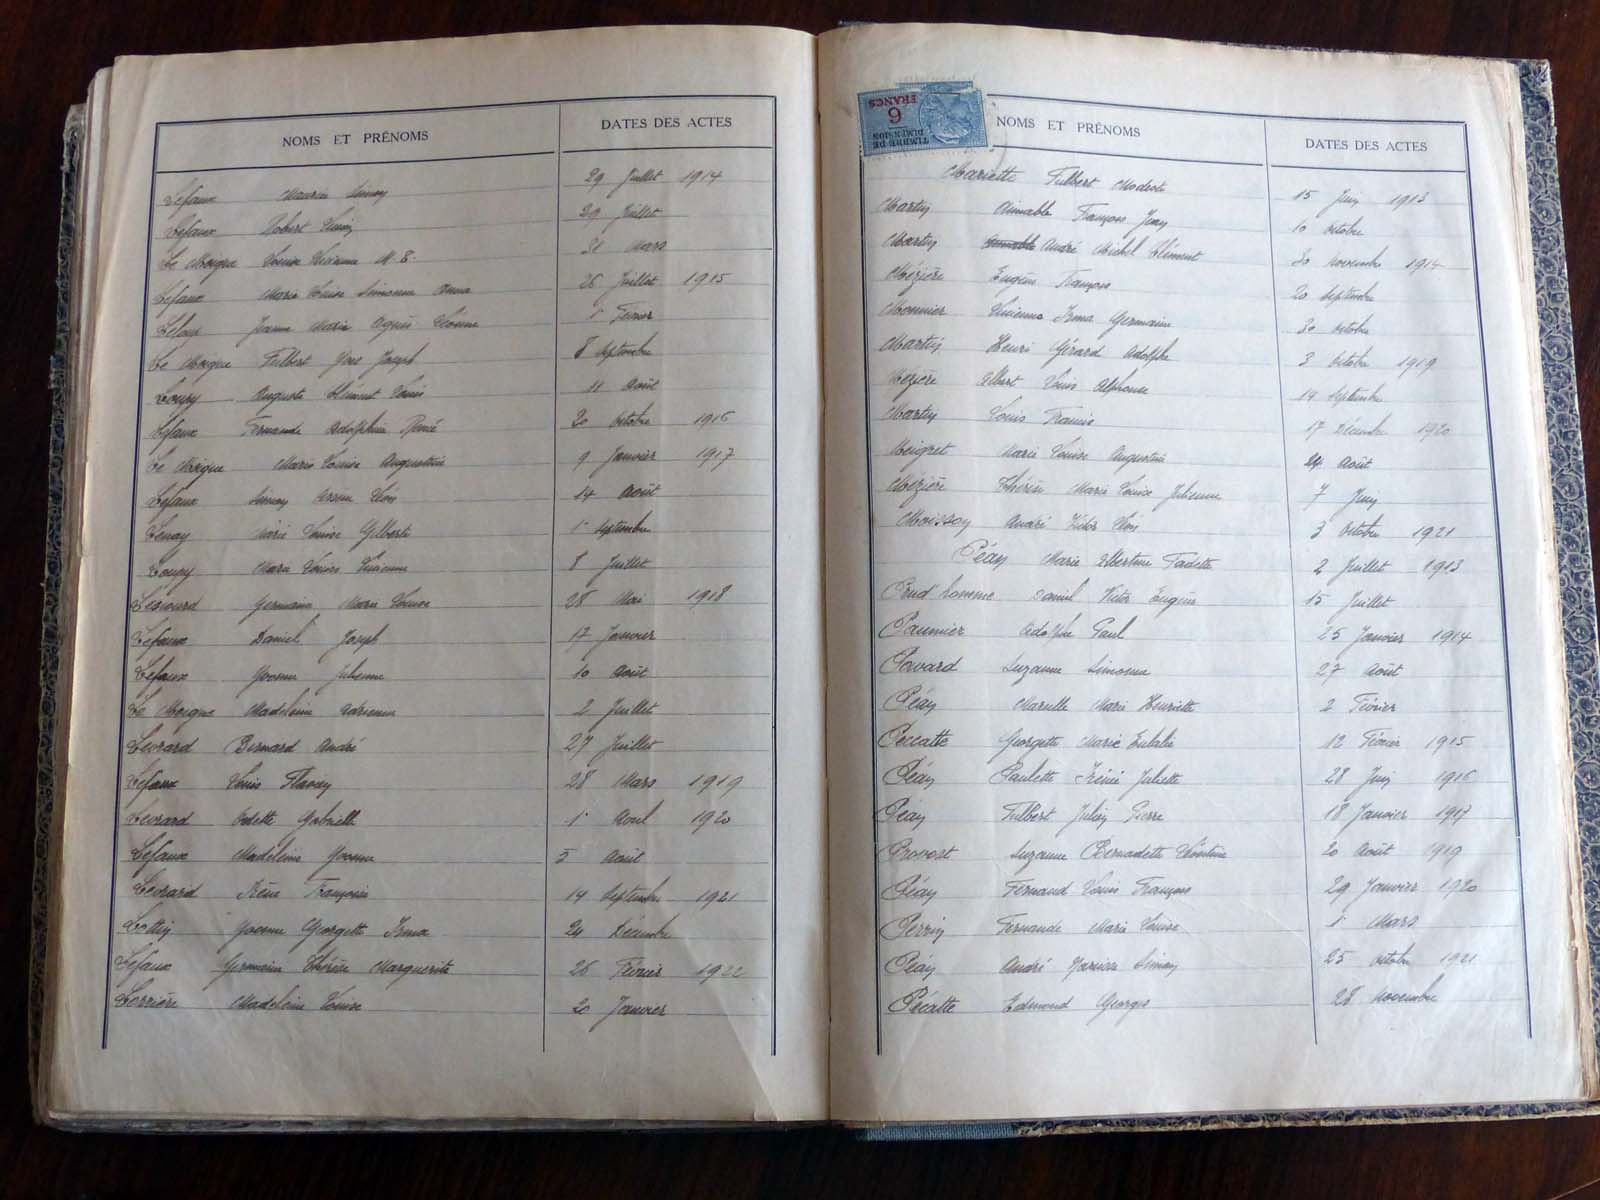 NOMS ET PRÉNOMS DATES DES ACTES
Lefaux Maurice 29 Juillet 1914
Lefaux Robert 29 Juillet
Le Moigne Louise Lucienne M. E. 31 Mars
Lefaux Marie Louise Simonne Anna 26 Juillet 1915
Jeanne Marie Agnès Léonie 1 Février
Le Moigne Fulbert Yves Joseph 8 Septembre
Loupy Auguste Clément Louis 11 Août
Lefaux Fernande Adolphine Renée 20 Octobre 1916
Le Moigne Marie Louise Augustine 9 Janvier 1917
Lefaux 14 Août
Marie Louise Gilberte 1 Septembre
Loupy Marie Louise Lucienne 8 Juillet
Germaine Marie Louise 28 Mai 1918
Lefaux Daniel Joseph 17 Janvier
Lefaux Yvonne Julienne 10 Août
Le Moigne Madeleine Adrienne 2 Juillet
Levrard Bernard André 27 Juillet
Lefaux Louis 28 Mars 1919
Levrard Odette Gabrielle 1 Avril 1920
Lefaux Madeleine Yvonne 5 Août
Levrard Irène Françoise 14 Septembre 1921
Lottin Yvonne Georgette Irma 24 Décembre
Lefaux Germaine Thérèse Marguerite 26 Février 1922
Lorrière Madeleine Louise 20 Janvier
TIMBRE DE DIMENSION
6 FRANCS
NOMS ET PRÉNOMS DATES DES ACTES
Mariette Fulbert Modeste 15 Juin 1913
Martin Aimable François Jean 10 Octobre
Martin André Michel Clément 30 Novembre 1914
Mézière Eugène François 20 Septembre
Monnier Lucienne Irma Germaine 30 Octobre
Martin Henri Gérard Adolphe 3 Octobre 1919
Mézière Albert Louis Alphonse 19 Septembre
Martin Louis Francis 17 Décembre 1920
Meignet Marie Louise Augustine 24 Août
Mézière Thérèse Marie Louise Julienne 7 Juin
Moissoy André Victor 3 Octobre 1921
Péan Marie Albertine 2 Juillet 1913
Prud'homme Daniel Victor Eugène 15 Juillet
Paumier Adolphe Paul 25 Janvier 1914
Pavard Suzanne Simonne 27 Août
Péan Marcelle Marie Henriette 2 Février
Péccatte Georgette Marie Eulalie 12 Février 1915
Péan Paulette Irénée Juliette 28 Juin 1916
Péan Fulbert Julien Pierre 18 Janvier 1917
Provost Suzanne Bernadette Léontine 20 Août 1919
Péan Fernand Louis François 29 Janvier 1920
Perrin Fernande Marie Louise 1 Mars
Péan André 25 Octobre 1921
Pécatte Edmond Georges 28 Novembre